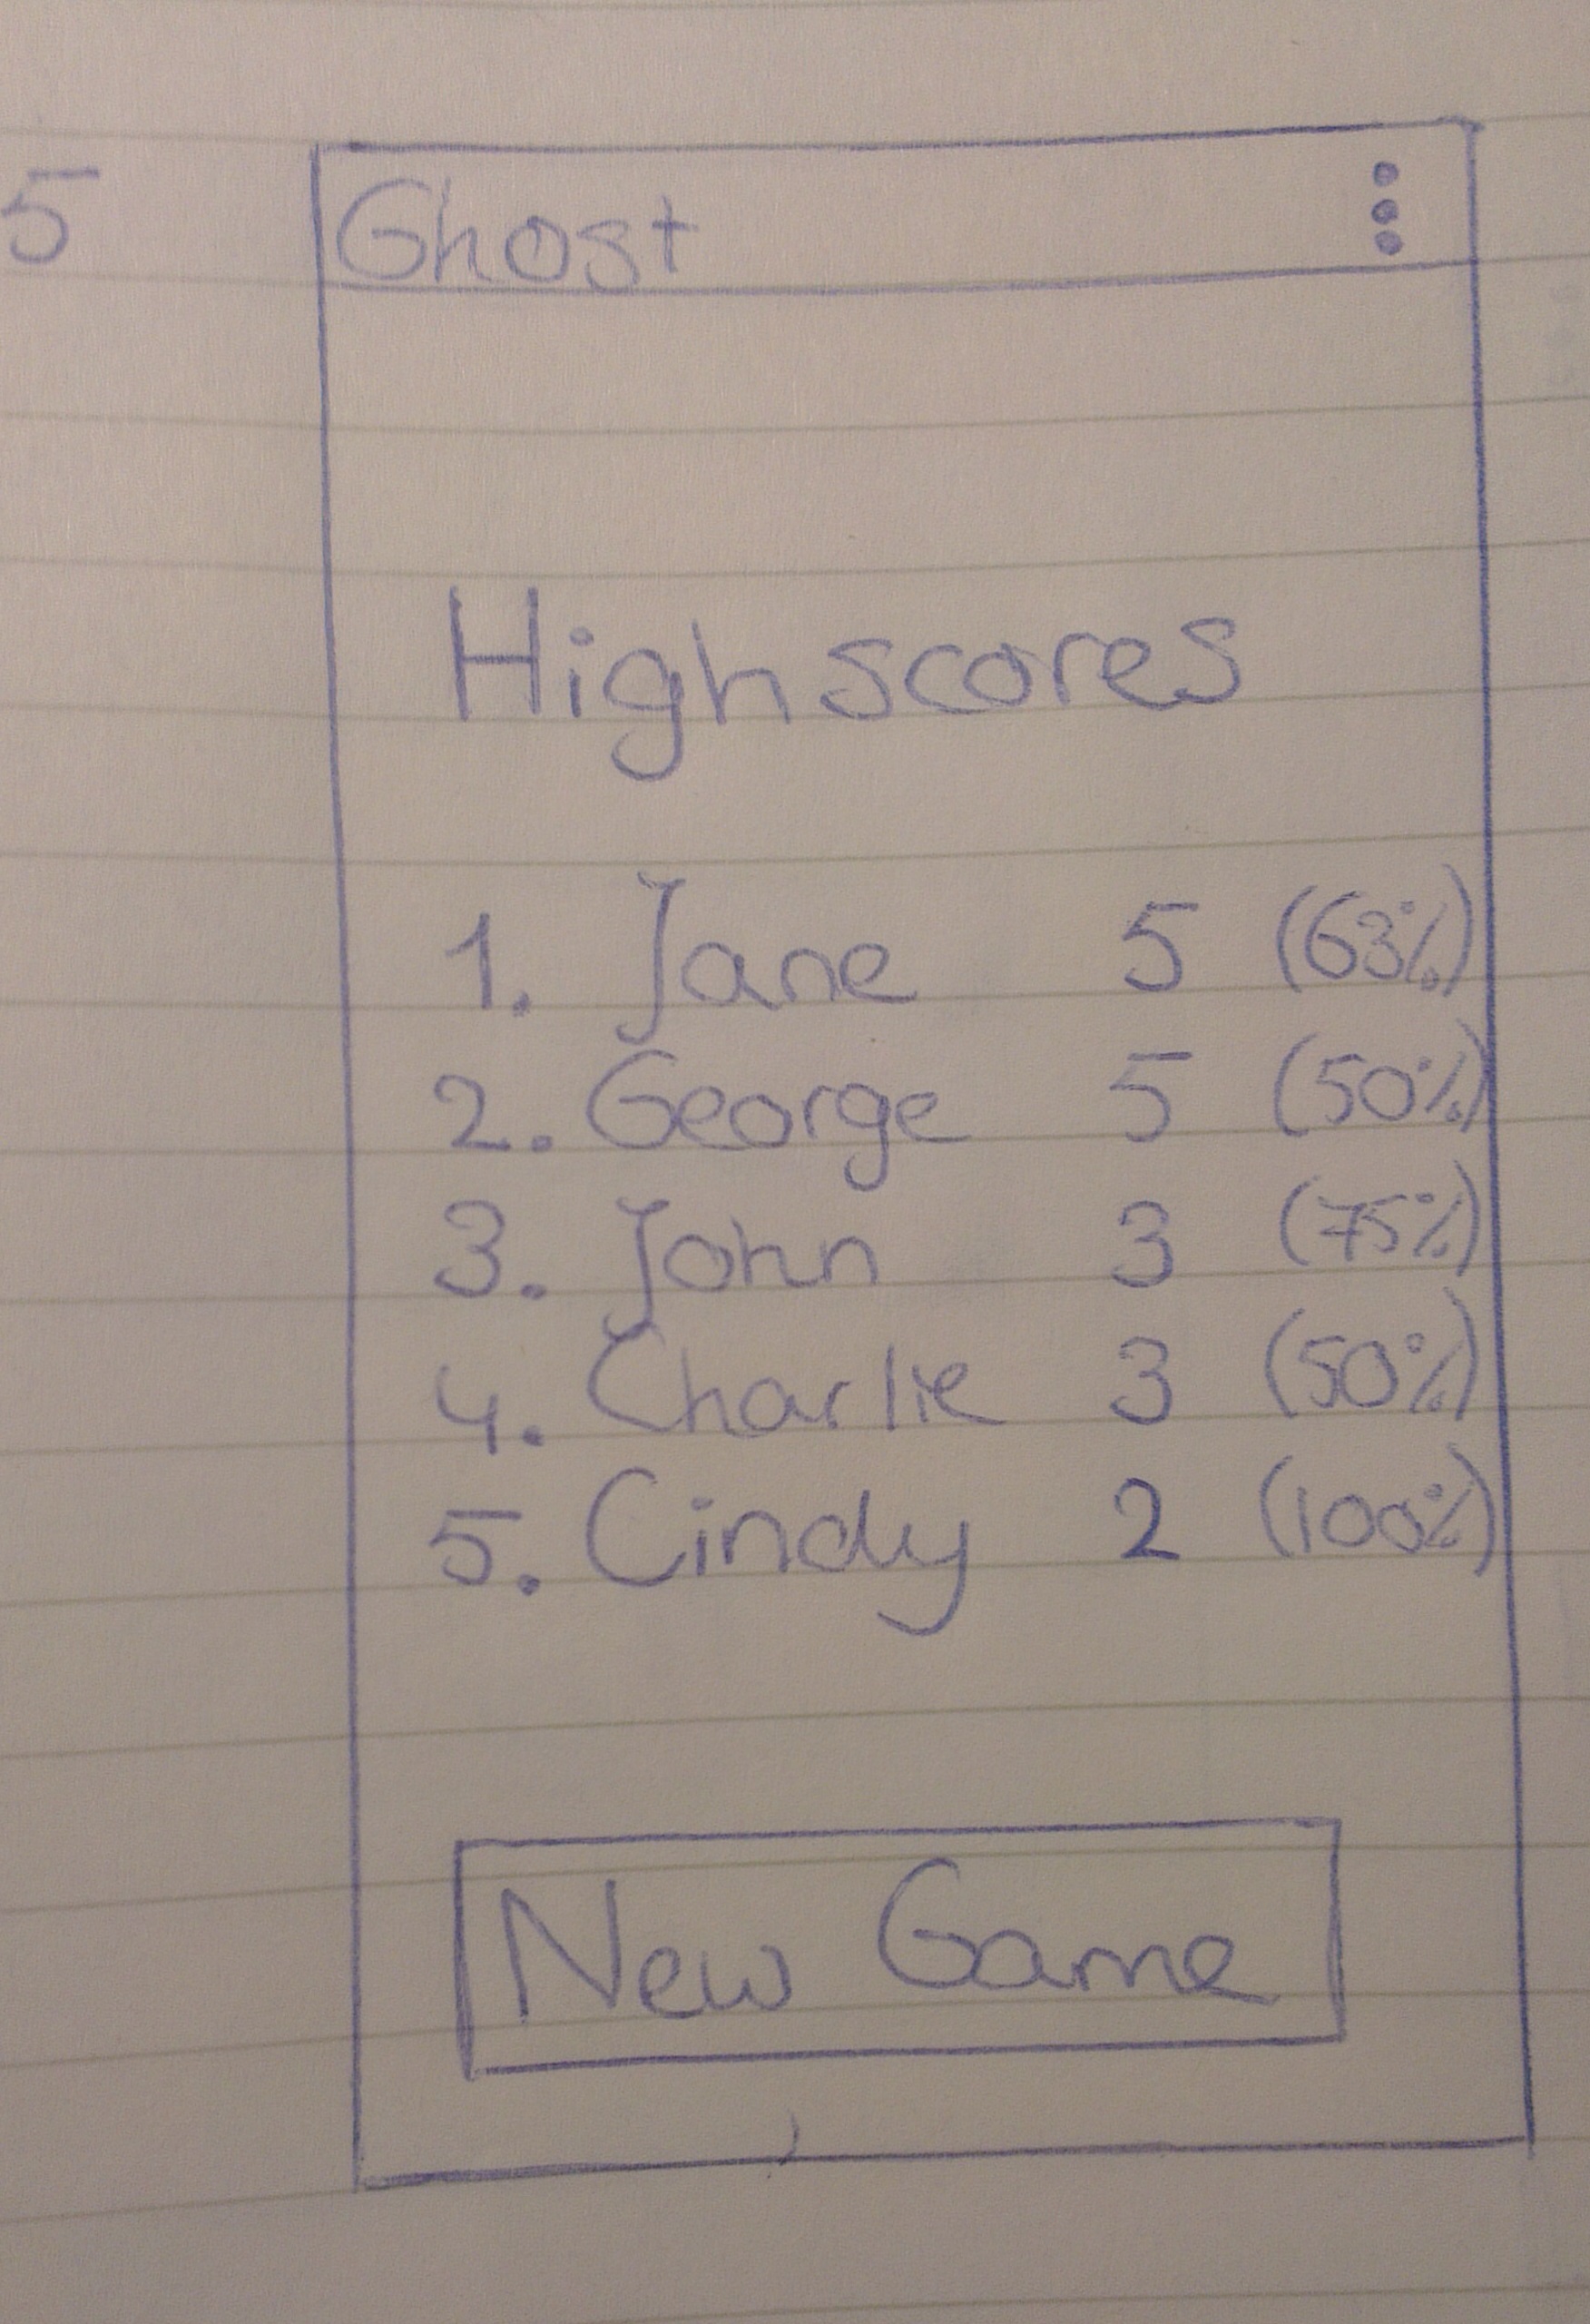 5
Ghost
Highscores
1. Jane 5 (63%)
2. George 5 (50%)
3. John 3 (75%)
4. Charlie 3 (50%)
5. Cindy 2 (100%)
New Game